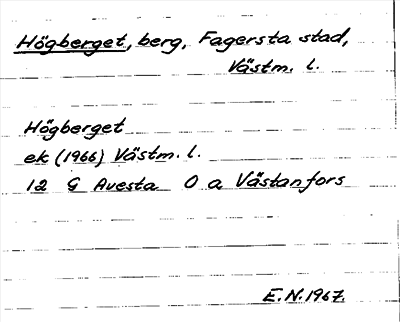 Högberget, berg, Fagersta stad,
Västm. l.
Högberget
ek (1966) Västm. l.
12 G Avesta O a Västanfors
E.N. 1967.